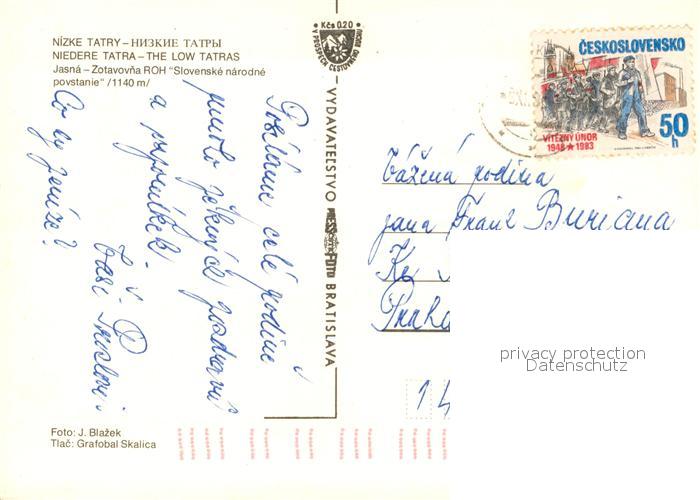 NÍZKE TATRY – НИЗКИЕ ТАТРЫ
NIEDERE TATRA – THE LOW TATRAS
Jasná – Zotavovňa ROH "Slovenské národné
povstanie" /1140 m/
Kčs 0.20
V PROSPECH CESTOVNÉHO RUCHU
VYDAVATEĽSTVO PRESSFOTO BRATISLAVA
ČESKOSLOVENSKO
VÍTĚZNÝ ÚNOR
1948 ★ 1983
50 h
Posíláme celé rodině
mnoho pozdravů
a vzpomínek.
Co
Vaši
Vážená rodina
pana Franz Buriana
Ke
Praha
14
privacy protection
Datenschutz
Foto: J. Blažek
Tlač: Grafobal Skalica